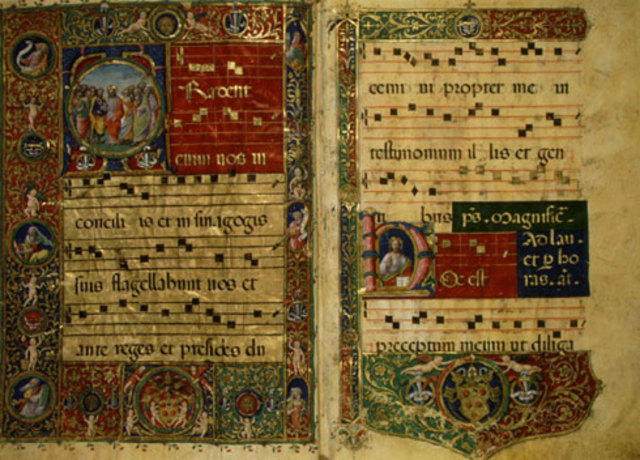 TRadent
enim uos in
concili is et in sinagogis
suis flagellabunt uos et
ante reges et presides du
cemi ni propter me in
testimonium il lis et gen
ti bus ps. Magnific̄.
Ad lau.
et ho
ras. an̄.
HOc est
preceptum meum ut diliga